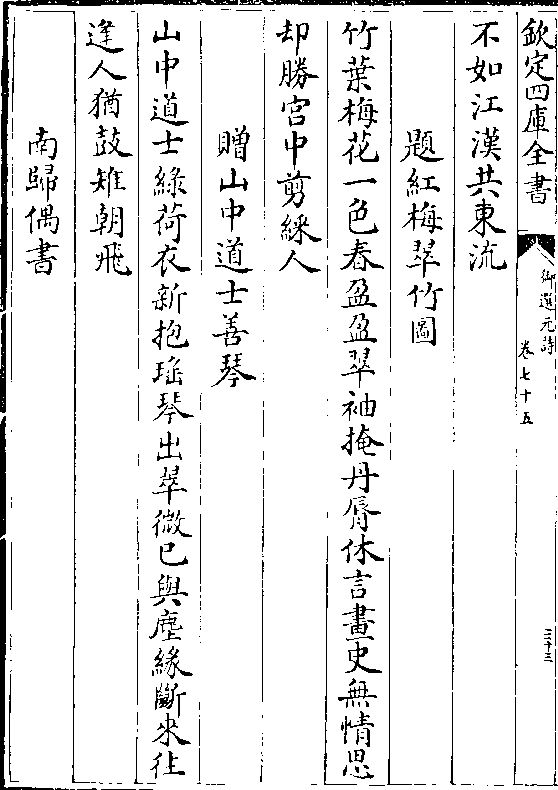 欽定四庫全書
御選元詩
卷七十五
三十三
不如江漢共東流
題紅梅翠竹圖
竹葉梅花一色春盈盈翠袖掩丹脣休言畫史無情思
却勝宮中剪綵人
贈山中道士善琴
山中道士綠荷衣新抱瑤琴出翠微已與塵緣斷來往
逢人猶鼓雉朝飛
南歸偶書